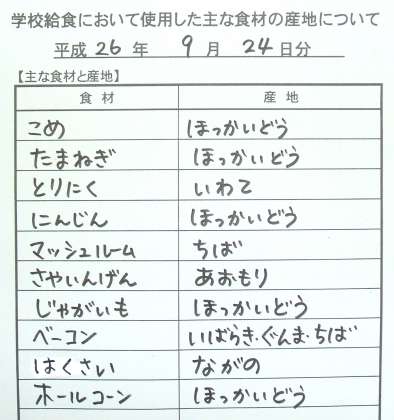 学校給食において使用した主な食材の産地について
平成 26 年 9 月 24 日分
【主な食材と産地】
食材 産地
こめ ほっかいどう
たまねぎ ほっかいどう
とりにく いわて
にんじん ほっかいどう
マッシュルーム ちば
さやいんげん あおもり
じゃがいも ほっかいどう
ベーコン いばらき・ぐんま・ちば
はくさい ながの
ホールコーン ほっかいどう